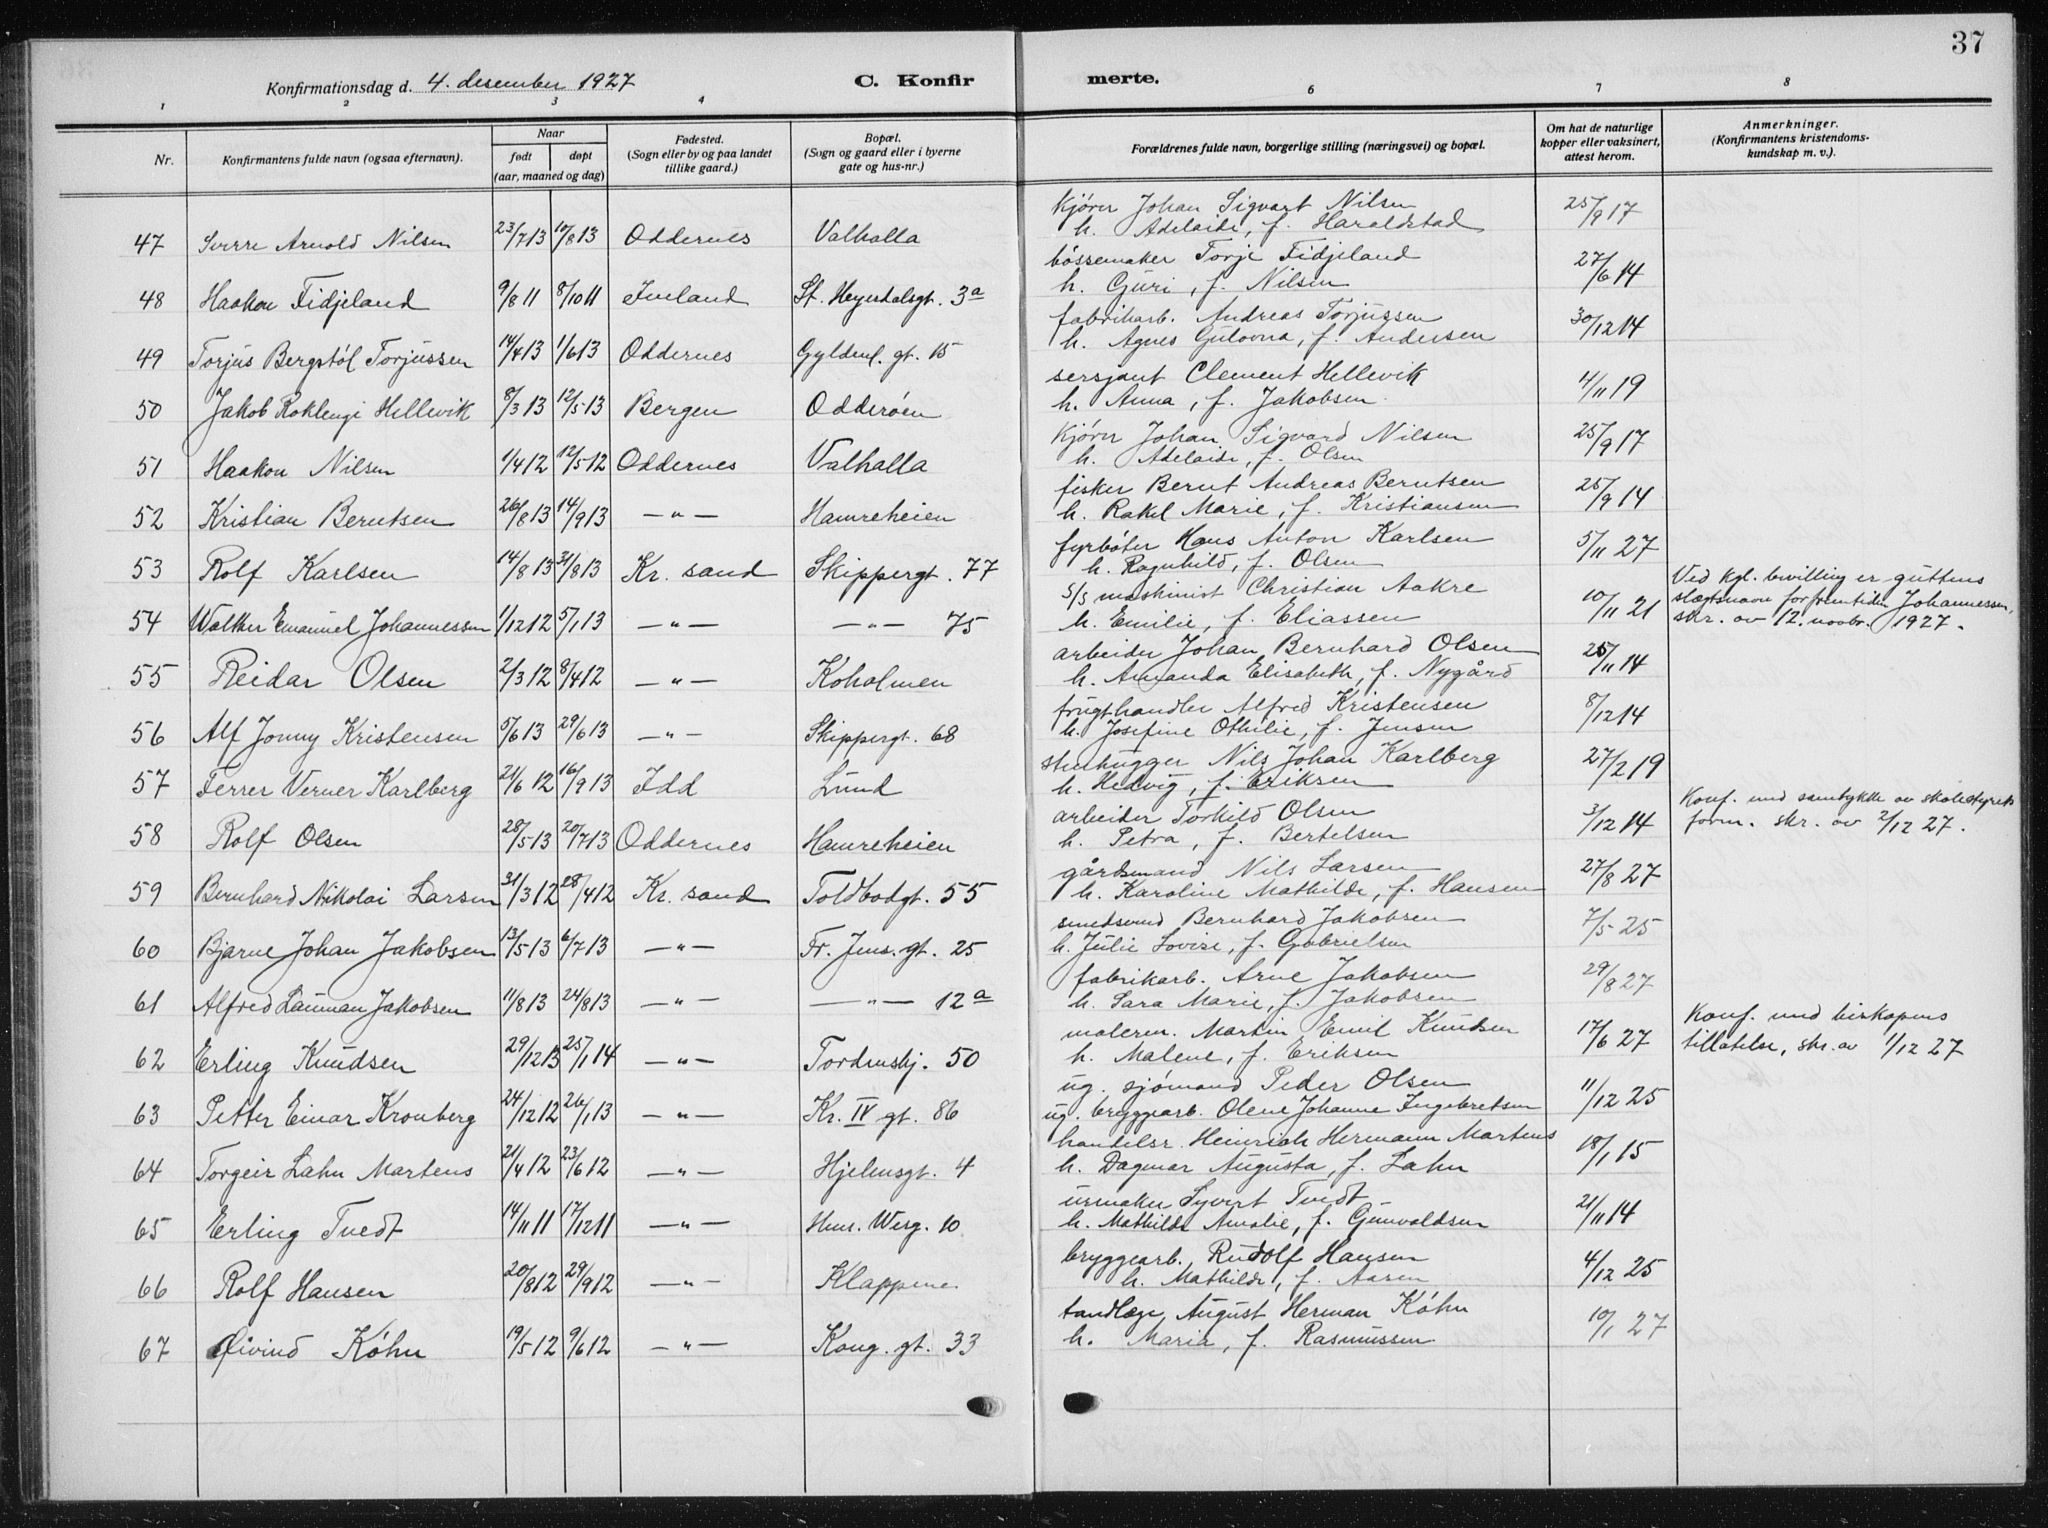 37
Konfirmationsdag d. 4. desember 1927 C. Konfir merte.
1 2 3 4 6 7 8
Nr. Konfirmantens fulde navn (ogsaa efternavn). Naar født døpt (aar, maaned og dag) Fødested. (Sogn eller by og paa landet tillike gaard.) Bopæl. (Sogn og gaard eller i byerne gate og hus-nr.) Forældrenes fulde navn, borgerlige stilling (næringsvei) og bopæl. Om hat de naturlige kopper eller vaksinert, attest herom. Anmerkninger. (Konfirmantens kristendoms-kundskap m. v.).
kjører Johan Sigvart Nilsen
47 Sverre Arnold Nilsen 23/7 13 10/8 13 Oddernes Valhalla h. Adelaide, f. Haraldstad 25/9 17
bössemaker Torje Fidjeland
48 Haakon Fidjeland 9/8 11 8/10 11 Iveland St. Heyerdalsgt. 3a h. Guri, f. Nilsen 27/6 14
fabrikarb. Andreas Torjussen
49 Torjus Bergstöl Torjussen 14/4 13 1/6 13 Oddernes Gyldenl. gt. 15 h. Agnes Gulovna, f. Andersen 30/12 14
sersjant Clement Hellevik
50 Jakob Roklengi Hellevik 8/3 13 12/5 13 Bergen Odderöen h. Anna, f. Jakobsen 4/11 19
Kjører Johan Sigvard Nilsen
51 Haakon Nilsen 1/4 12 12/5 12 Oddernes Valhalla h. Adelaide, f. Olsen 25/9 17
fisker Bernt Andreas Berntsen
52 Kristian Berntsen 26/8 13 14/9 13 —"— Hamreheien h. Rakel Marie, f. Kristiansen 25/9 14
fyrböter Hans Anton Karlsen
53 Rolf Karlsen 14/8 13 31/8 13 Kr. sand Skippergt. 77 h. Ragnhild, f. Olsen 5/11 27
s/s maskinist Christian Aakre Ved kgl. bevilling er guttens
54 Walter Emanuel Johannessen 1/12 12 5/1 13 —"— —"— 75 h. Emilie, f. Eliassen 10/11 21 slegtsnavn for fremtiden Johannessen,
skr. av 12. novbr. 1927.
arbeider Johan Bernhard Olsen
55 Reidar Olsen 2/3 12 8/4 12 —"— Koholmen h. Amanda Elisabeth, f. Nygård 25/11 14
frugthandler Alfred Kristensen
56 Alf Jonny Kristensen 5/6 13 29/6 13 —"— Skippergt. 68 h. Josefine Othilie, f. Jensen 8/12 14
stenhugger Nils Johan Karlberg
57 Ferrer Verner Karlberg 21/6 12 16/9 13 Idd Lund h. Hedvig, f. Eriksen 27/2 19
arbeider Torkild Olsen Konf. med samtykke av skolestyrets
58 Rolf Olsen 28/5 13 20/7 13 Oddernes Hamreheien h. Petra, f. Bertelsen 3/12 14 form. skr. av 2/12 27.
gårdsmand Nils Larsen
59 Bernhard Nikolai Larsen 31/3 12 28/4 12 Kr. sand Toldbodgt. 55 h. Karoline Mathilde, f. Hansen 27/8 27
smedsvend Bernhard Jakobsen
60 Bjarne Johan Jakobsen 13/5 13 6/7 13 —"— Fr. Jens. gt. 25 h. Julie Lovise, f. Gabrielsen 7/5 25
fabrikarb. Arne Jakobsen
61 Alfred Lauman Jakobsen 11/8 13 24/8 13 —"— —"— 12a h. Sara Marie, f. Jakobsen 29/8 27
malerm. Martin Emil Knudsen Konf. med biskopens
62 Erling Knudsen 29/12 13 25/1 14 —"— Tordenskj. 50 h. Malene, f. Eriksen 17/6 27 tillatelse, skr. av 1/12 27
ug. sjömand Peder Olsen
63 Petter Einar Kronberg 24/12 12 26/1 13 —"— Kr. IV gt. 86 ug. bryggearb. Olene Johanne Ingebretsen 11/12 25
handelsr. Heinrich Hermann Martens
64 Torgeir Lahn Martens 21/4 12 23/6 12 —"— Hjelmsgt. 4 h. Dagmar Augusta, f. Lahn 18/1 15
urmaker Syvert Tvedt
65 Erling Tvedt 14/11 11 17/12 11 —"— Hens. Werg. 10 h. Mathilde Amalie, f. Gunvaldsen 21/11 14
bryggearb. Rudolf Hansen
66 Rolf Hansen 20/8 12 29/9 12 —"— Klappene h. Mathilde, f. Aasen 4/12 25
tandlæge August Herman Köhn
67 Øivind Köhn 19/5 12 9/6 12 —"— Kong. gt. 33 h. Maria, f. Rasmussen 10/1 27